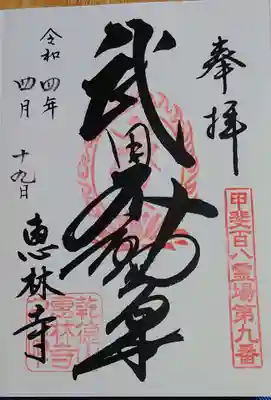 奉拝
甲斐百八霊場第九番
武田不動尊
令和四年
四月十九日
恵林寺
乾徳山
恵林寺